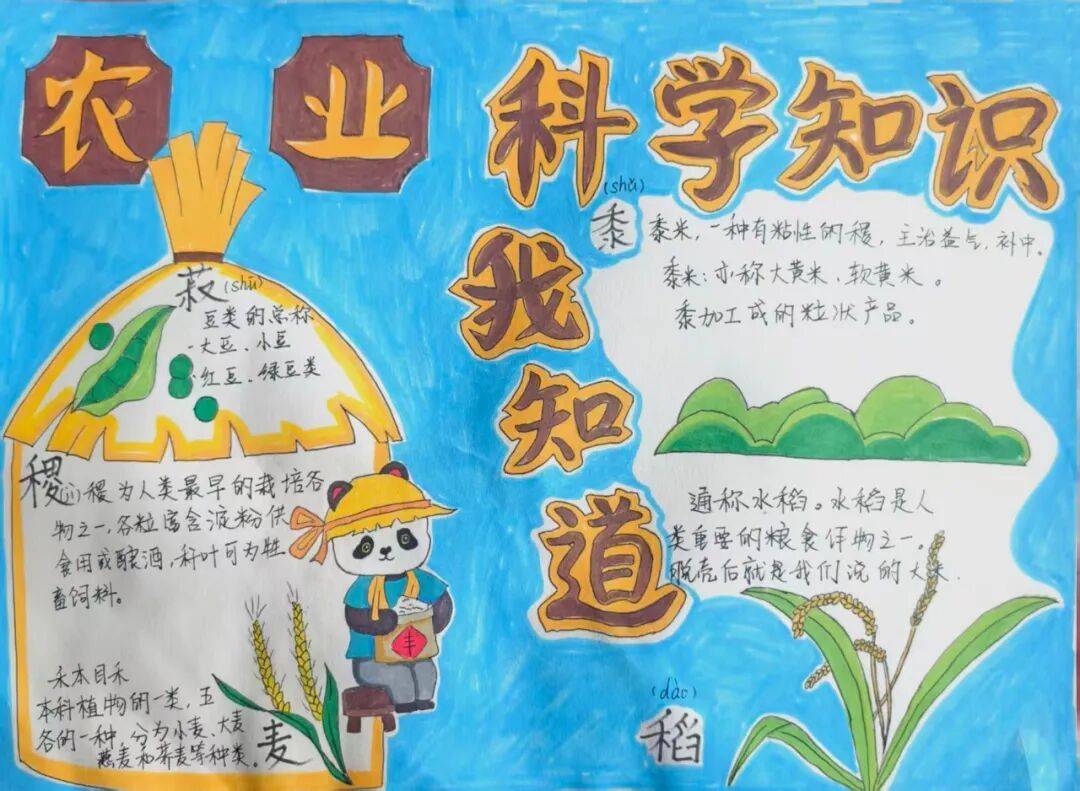 农业科学知识
我知道
菽(shū)
豆类的总称
·大豆、小豆
·红豆、绿豆类
稷(jì)稷为人类最早的栽培谷
物之一,谷粒富含淀粉供
食用或酿酒,秆叶可为牲
畜饲料。
禾本目禾
本科植物的一类,五
谷的一种,分为小麦、大麦
燕麦和荞麦等种类。
麦
(shǔ)
黍
黍米,一种有粘性的稷,主治益气,补中。
黍米:亦称大黄米、软黄米。
黍加工成的粒状产品。
通称水稻。水稻是人
类重要的粮食作物之一。
脱壳后就是我们说的大米.
(dào)
稻
丰